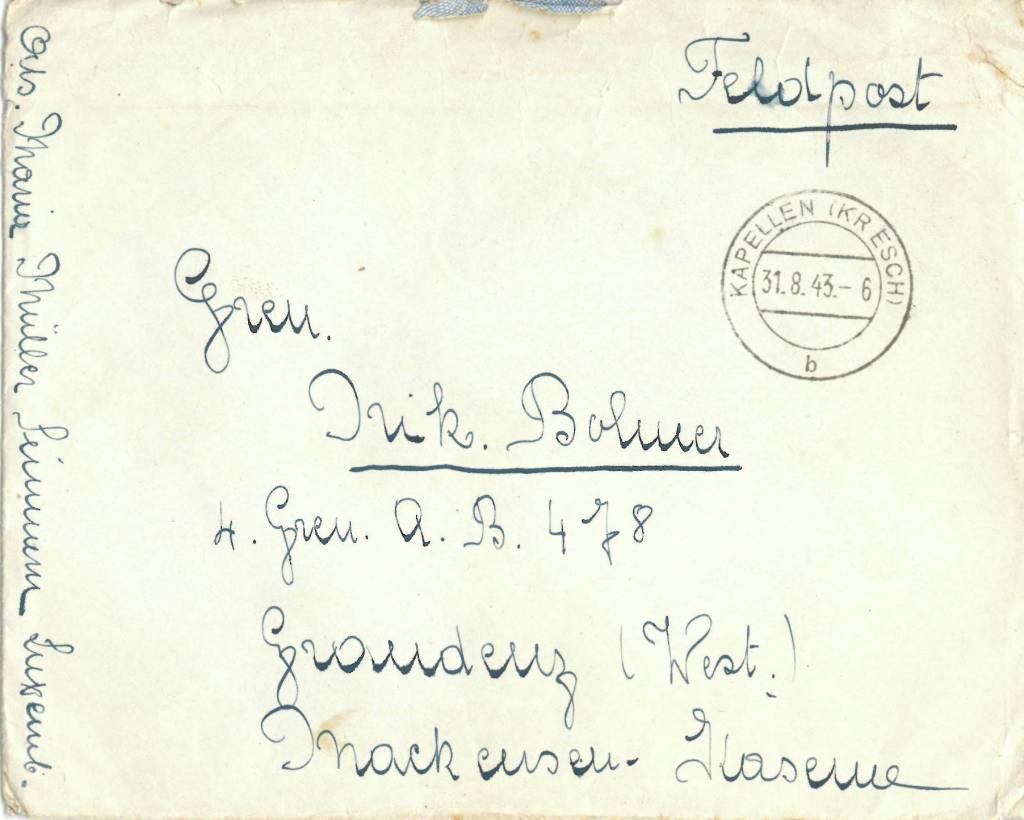 Feldpost
KAPELLEN (KR ESCH)
31.8.43.- 6
b
Gren.
Nik. Bohmer
4. Gren. A. B. 478
Graudenz (West.)
Mackensen-Kaserne
Abs. Maria Müller Simmern Luxemb.